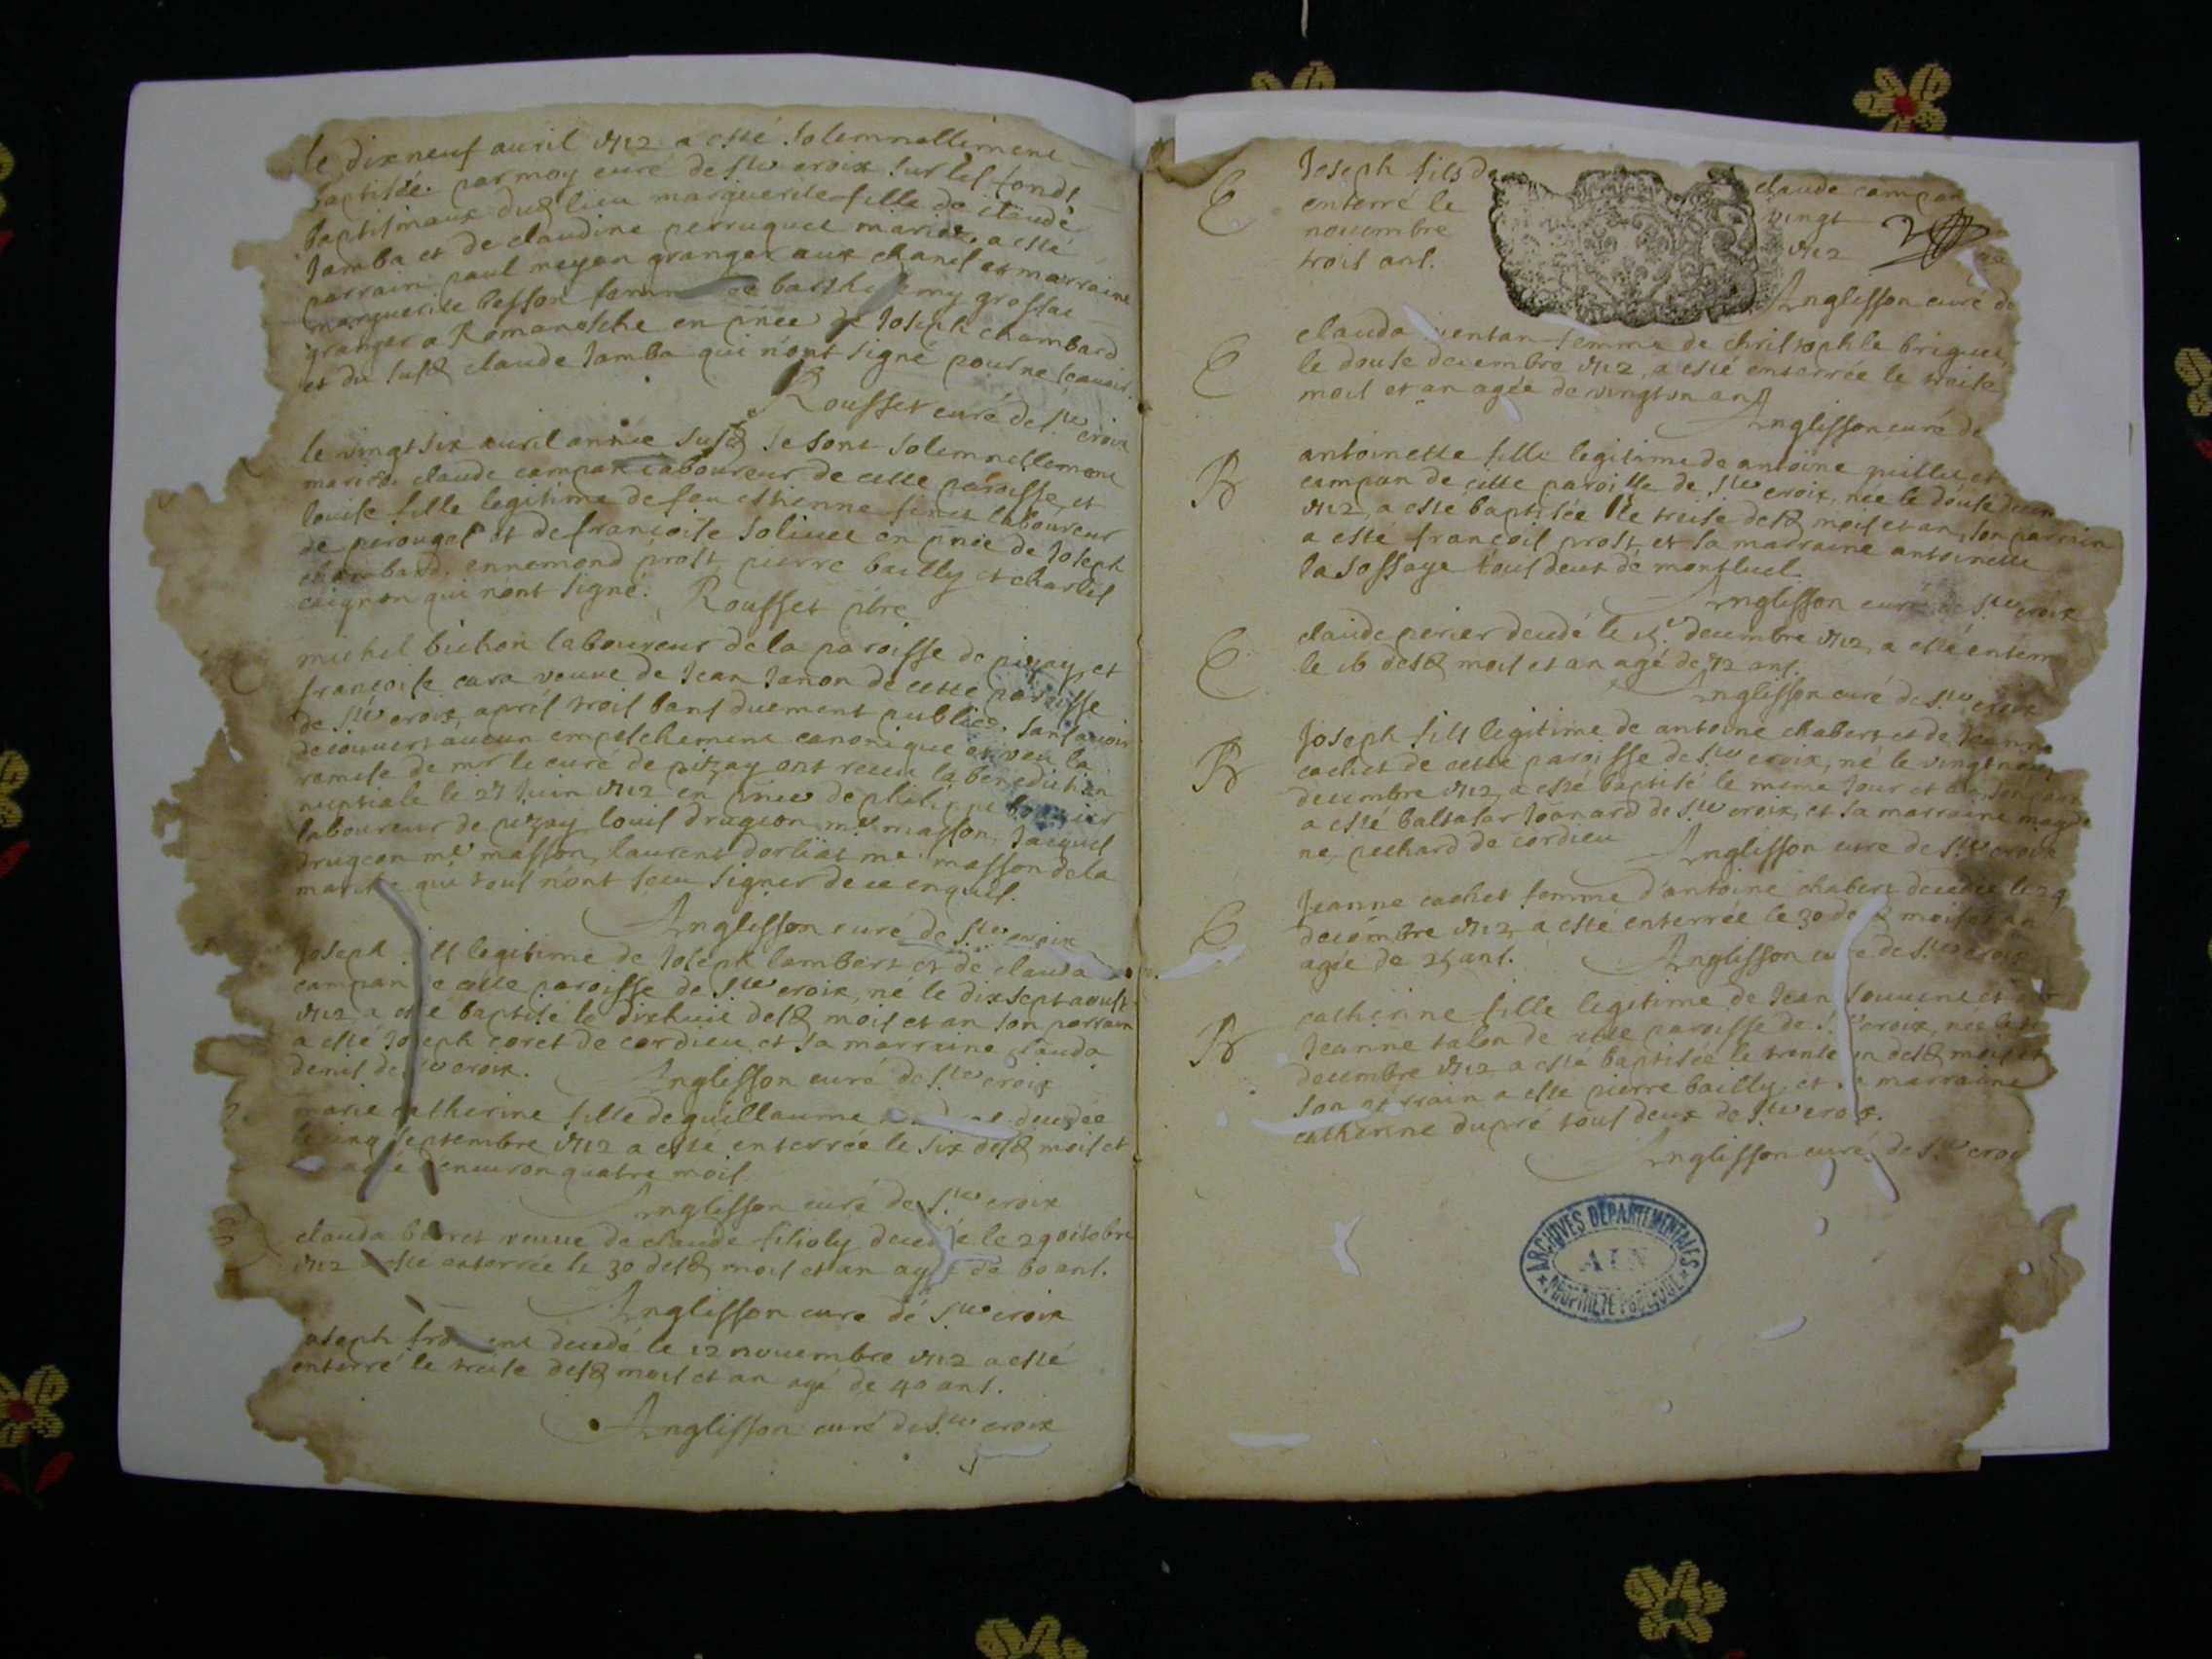 le dix neuf auril 1712 a esté solemnellement
baptisée par moy curé de Ste croix sur les fonds
baptismaux dud lieu marguerite fille de claude
Jamba et de claudine perruquet mariez, a esté
parrain paul meyan granger aux chanel et marraine
marguerite besson femme de barthelemy grossat
granger a Romanesche en pnce de Joseph chambard
et du susd claude Jamba qui n'ont signé pour ne scauoir
Rousset curé de Ste croix
le vingt six auril année susd se sont solemnellement
mariés claude campan laboureur de cette paroisse, et
louise fille legitime de feu estienne laboureur
de perouges et de françoise soliuet en pnce de Joseph
chambard, ennemond prost, pierre bailly et charles
caignon qui n'ont signé. Rousset ptre
michel bichon laboureur de la paroisse de pizay, et
françoise cara veuue de Jean Janon de cette paroisse
de Ste croix, aprés trois bans duement publiés, sans auoir
decouuert aucun empeschement canonique et veu la
remise de mr le curé de pizay ont receu la benediction
nuptiale le 27 Juin 1712 en pnce de philippe
laboureur de pizay, louis drugeon me masson, Jacques
drugeon me masson, laurent dorliat me masson de la
qui tous n'ont sceu signer de ce enquis.
Anglisson curé de Ste croix
Joseph fils legitime de Joseph lambert et de clauda
campan de cette paroisse de Ste croix, né le dix sept aoust
1712 a esté baptisé le dixhuit desd mois et an son parrain
a esté Joseph coret de cordieu et sa marraine clauda
denis de Ste croix. Anglisson curé de Ste croix
marie catherine fille de guillaume decedée
le cinq septembre 1712 a esté enterrée le six desd mois et
an agée d'enuiron quatre mois
Anglisson curé de Ste croix
clauda veuue de claude filioly decedée le 29 octobre
1712 a esté enterrée le 30 desd mois et an agée de 60 ans.
Anglisson curé de Ste croix
Joseph decedé le 12 nouembre 1712 a esté
enterré le treise desd mois et an agé de 40 ans.
Anglisson curé de Ste croix
E Joseph fils de claude campan
enterré le vingt
nouembre 1712
trois ans.
Anglisson curé de
E clauda femme de christophle briguet
le douse decembre 1712, a esté enterrée le treise
mois et an agée de vingt un ans
Anglisson curé de
B antoinette fille legitime de antoine et
campan de cette paroisse de Ste croix, née le douse
1712, a esté baptisée le treise desd mois et an, son parrain
a esté françois prost, et sa marraine antoinette
la sossaye tous deux de montluel.
Anglisson curé de Ste croix
E claude perier decedé le 15e decembre 1712, a esté enterré
le 16 desd mois et an agé de 72 ans.
Anglisson curé de Ste croix
B Joseph fils legitime de antoine chabert et de Jeanne
cachet de cette paroisse de Ste croix, né le vingt neuf
decembre 1712, a esté baptisé le meme jour et an, son
a esté baltasar Joanard de Ste croix, et sa marraine
ne pechard de cordieu Anglisson curé de Ste croix
E Jeanne cachet femme d'antoine chabert decedée le 29
decembre 1712, a esté enterrée le 30 desd mois et an
agée de 25 ans. Anglisson curé de Ste croix
B catherine fille legitime de Jean et de
Jeanne talon de cette paroisse de Ste croix, née le
decembre 1712 a esté baptisée le trente un desd mois et
son parrain a esté pierre bailly, et sa marraine
catherine dupré tous deux de Ste croix.
Anglisson curé de Ste croix
ARCHIVES DÉPARTEMENTALES
AIN
PROPRIÉTÉ PUBLIQUE